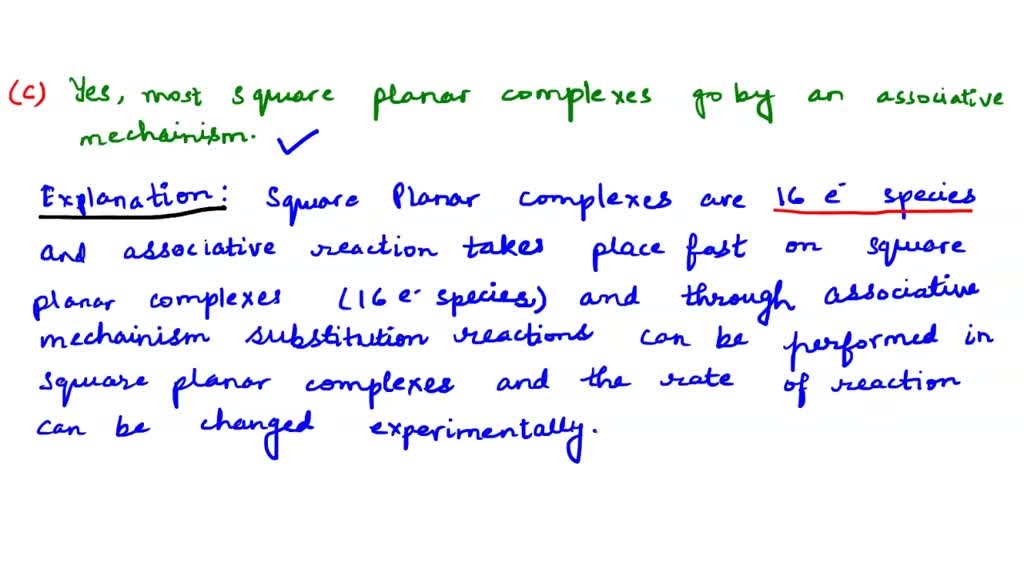 (C) Yes, most square planar complexes go by an associative
mechainism.
Explanation: Square Planar complexes are 16 e⁻ species
and associative reaction takes place fast on square
planar complexes (16 e⁻ species) and through associative
mechainism substitution reactions can be performed in
square planar complexes and the rate of reaction
can be changed experimentally.